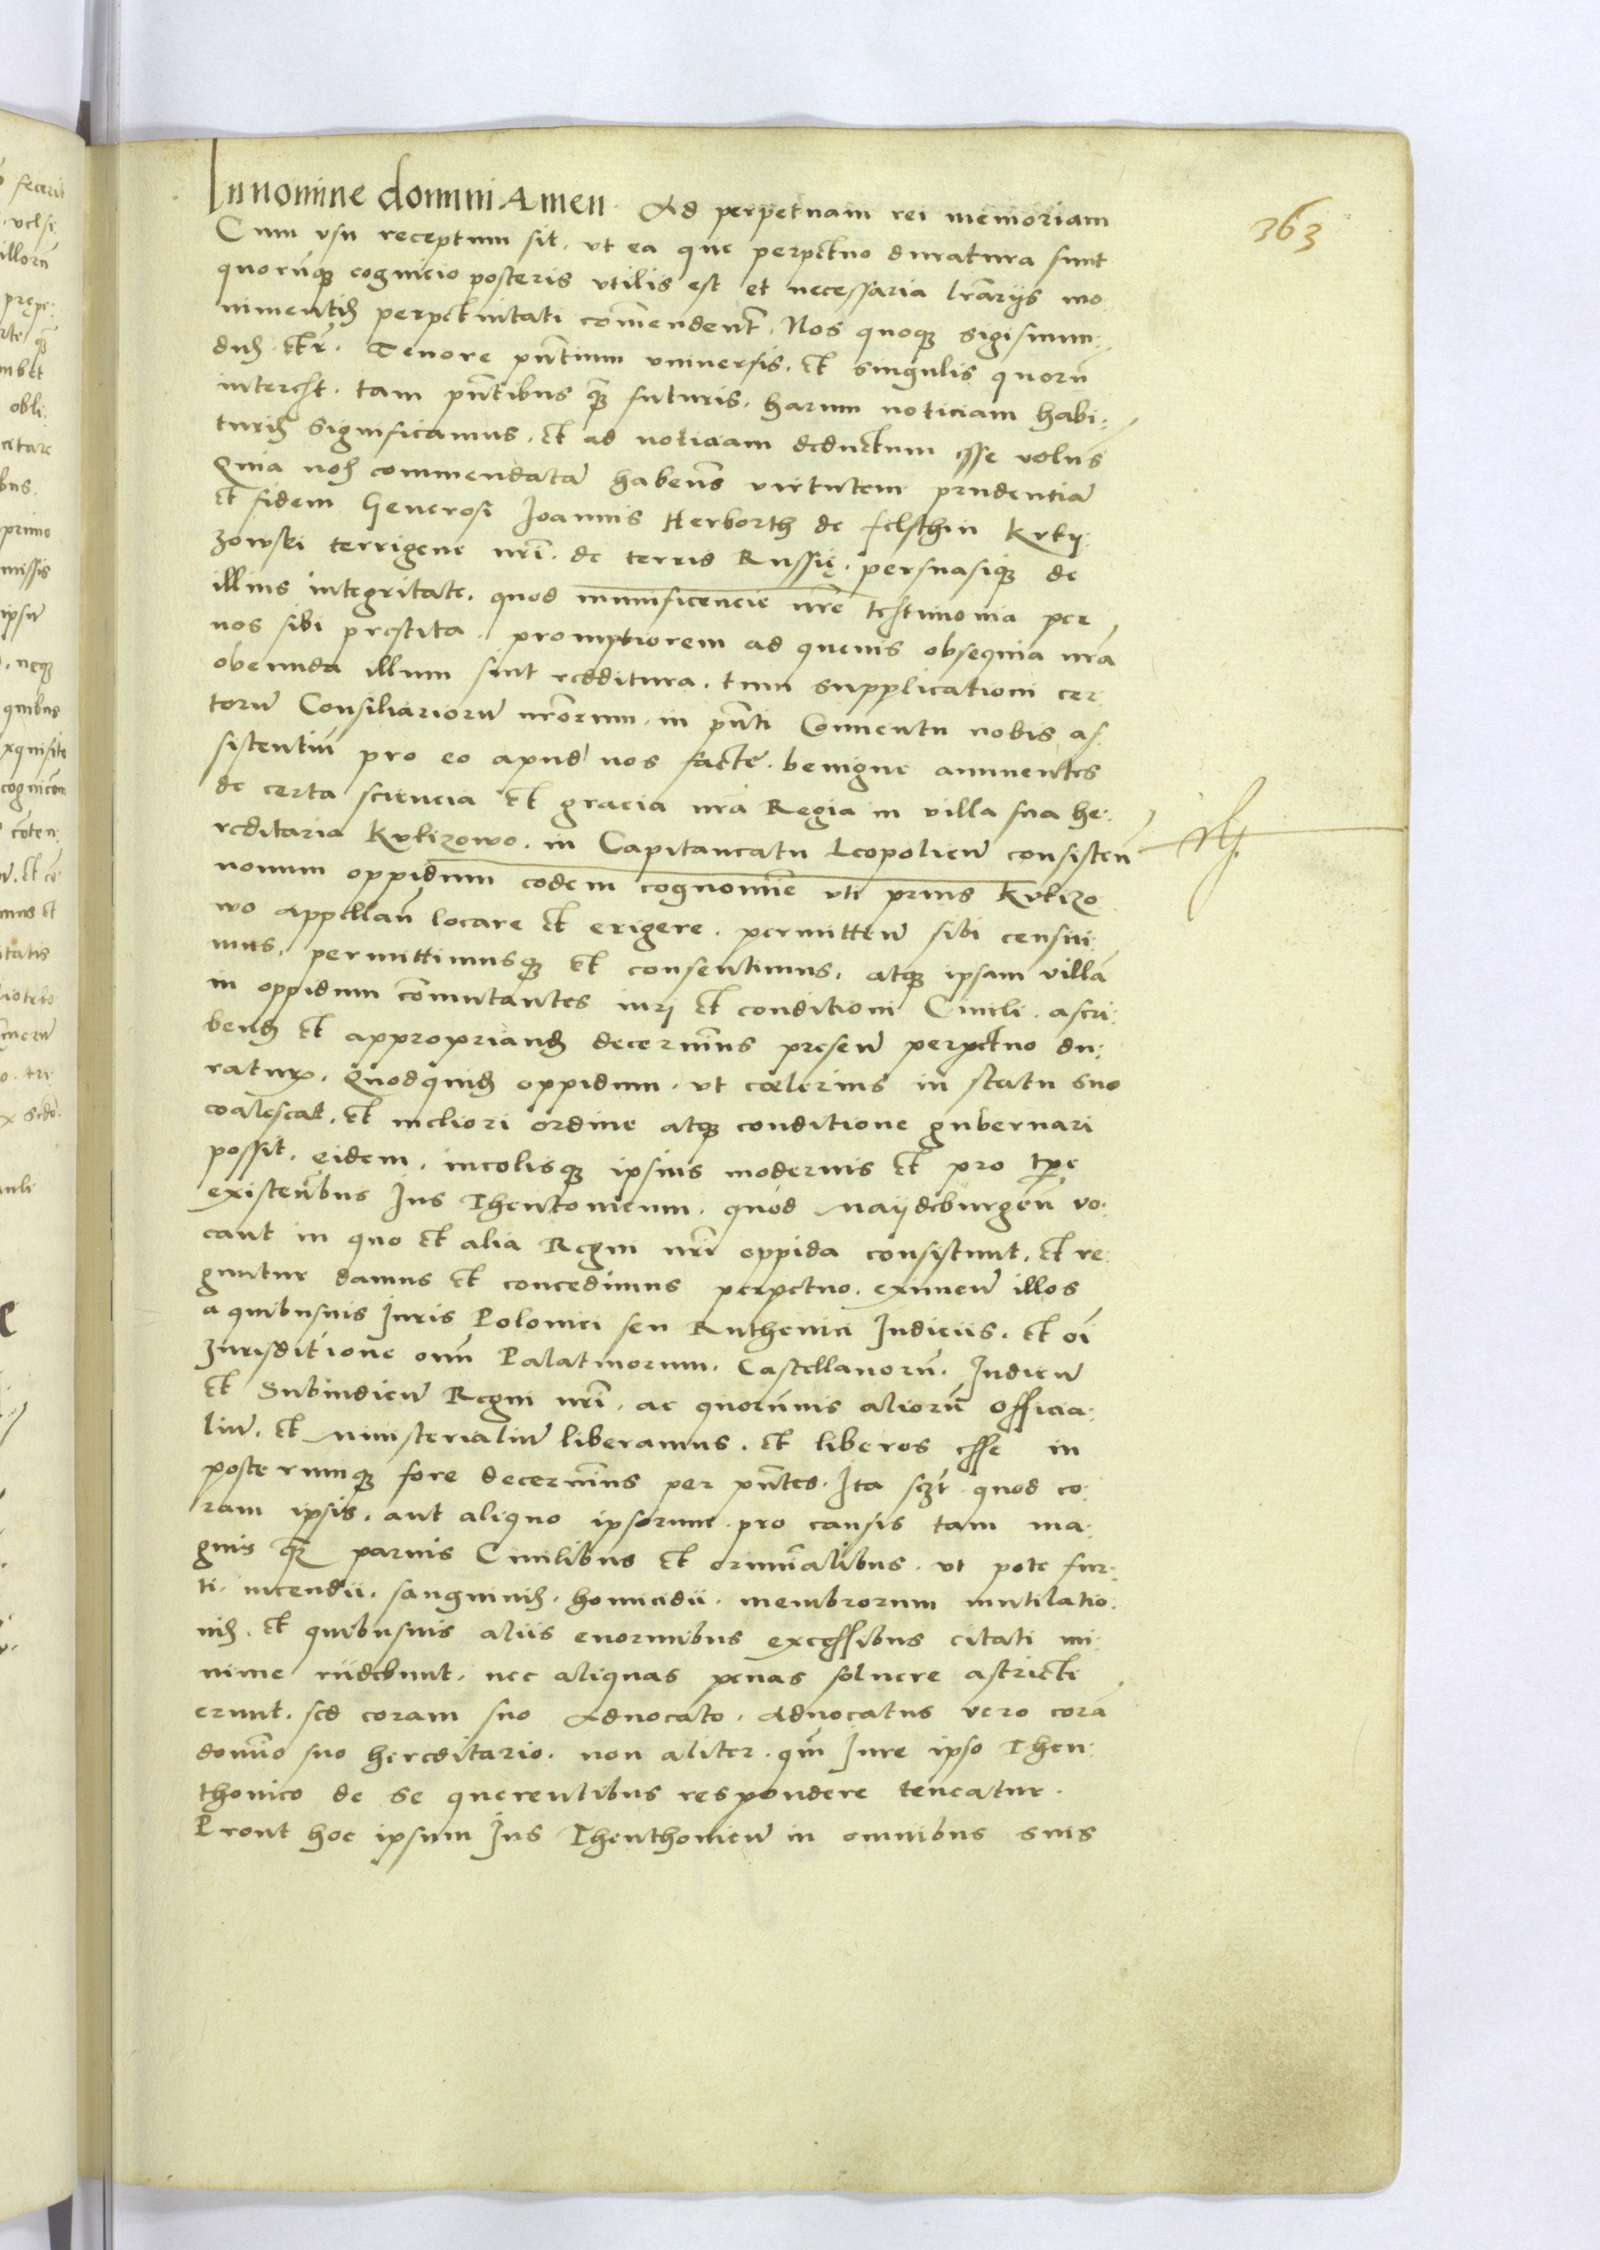 In nomine domini Amen. Ad perpetuam rei memoriam
363
Cum vsu receptum sit, vt ea que perpetuo duratura sunt
quorumq; cognicio posteris vtilis est et necessaria lrarijs mo
nimentis perpetuitati comendent. Nos quoq; Sigismun:
dus etc. Tenore pntium vniuersis, et singulis quoru
interest, tam pntibus q̃ futuris, harum noticiam habi:
turis significamus, et ad noticiam deductum esse volus
Quia nos commendata habens virtutem prudentia
et fidem Generosi Joannis Herborth de felsthin kvki:
zowski terrigene nri de terris Russię, persuasiq; de
illius integritate, quod munificencie nre testimonia per
nos sibi prestita, promptiorem ad queuis obsequia nra
obeunda illum sint redditura, tum supplicationi cer:
toru Consiliarioru nrorum, in pnti Conuentu nobis as
sistentiu pro eo apud nos facte, benigne annuentes
de certa sciencia et gracia nra Regia in villa sua he:
reditaria kvkizowo, in Capitaneatu Leopolien consisten
nouum oppidum eodem cognomine vti prius kvkizo
wo appellan locare et erigere, permitten sibi censui:
mus, permittimusq; et consentimus, atq; ipsam villa
in oppidum comutantes iuri et conditioni Ciuili, ascri:
bend et appropriand decernims presen perpetuo du:
ratur, Quodquid oppidum, vt celerius in statu suo
coalescat, et meliori ordine atq; conditione gubernari
possit, eidem, incolisq; ipsius modernis et pro tpe
existentibus Jus Theutonicum, quod Maijdeburgen vo:
cant in quo et alia Regni nri oppida consistunt, et re:
guntur damus et concedimus perpetuo, eximen illos
a quibusuis Juris Polonici seu Ruthenici Judicijs, et oi
Jurisditione oim Palatinorum, Castellanoru, Judicu
et Subiudicu Regni nri, ac quorumuis alioru officia:
liu, et ministerialiu liberamus, et liberos esse in
posterumq; fore decernims per pntes. Ita sczt quod co:
ram ipsis, aut aliquo ipsorum pro causis tam ma:
gnis q̃ paruis Ciuilibus et criminalibus, vt pote fur:
ti, incendii, sanguinis, homicidii, membrorum mutilatio:
nis, et quibusuis aliis enormibus excessibus citati mi:
nime rndebunt, nec aliquas penas soluere astricti
erunt, sed coram suo Aduocato, Aduocatus vero cora
domino suo hereditario, non aliter, qm Jure ipso Theu:
thonico de se querentibus respondere teneatur.
Prout hoc ipsum Jus Theuthonicu in omnibus suis